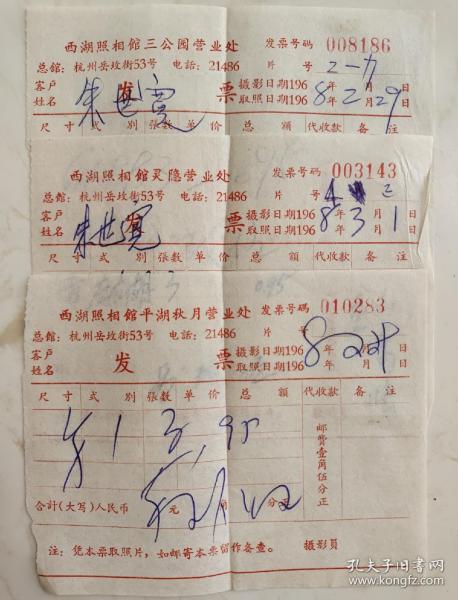 西湖照相館三公园营业处 发票号码 008186
总館：杭州岳坟街53号 电話：21486 片 号
客户 发 票 摄影日期196 年 月 日
姓名 朱世寬 取照日期1968年2月29日
尺寸 式别 張数 单价 总额 代收款 备注
西湖照相館灵隐营业处 发票号码 003143
总館：杭州岳坟街53号 电話：21486 片 号
客户 票 摄影日期196 年 月 日
姓名 朱世寬 取照日期1968年3月1日
尺寸 式别 張数 单价 总额 代收款 备注
西湖照相館平湖秋月营业处 发票号码 010283
总館：杭州岳坟街53号 电話：21486 片 号
客户 发 票 摄影日期1968年 月 日
姓名 取照日期196 年 月 日
尺寸 式别 張数 单价 总额 代收款 备注
1 3 95
邮費壹角伍分正
合計(大写)人民币 元 角 分正
注：凭本票取照片，如邮寄本票留作备查。 摄影員
孔夫子旧书网
www.kongfz.com